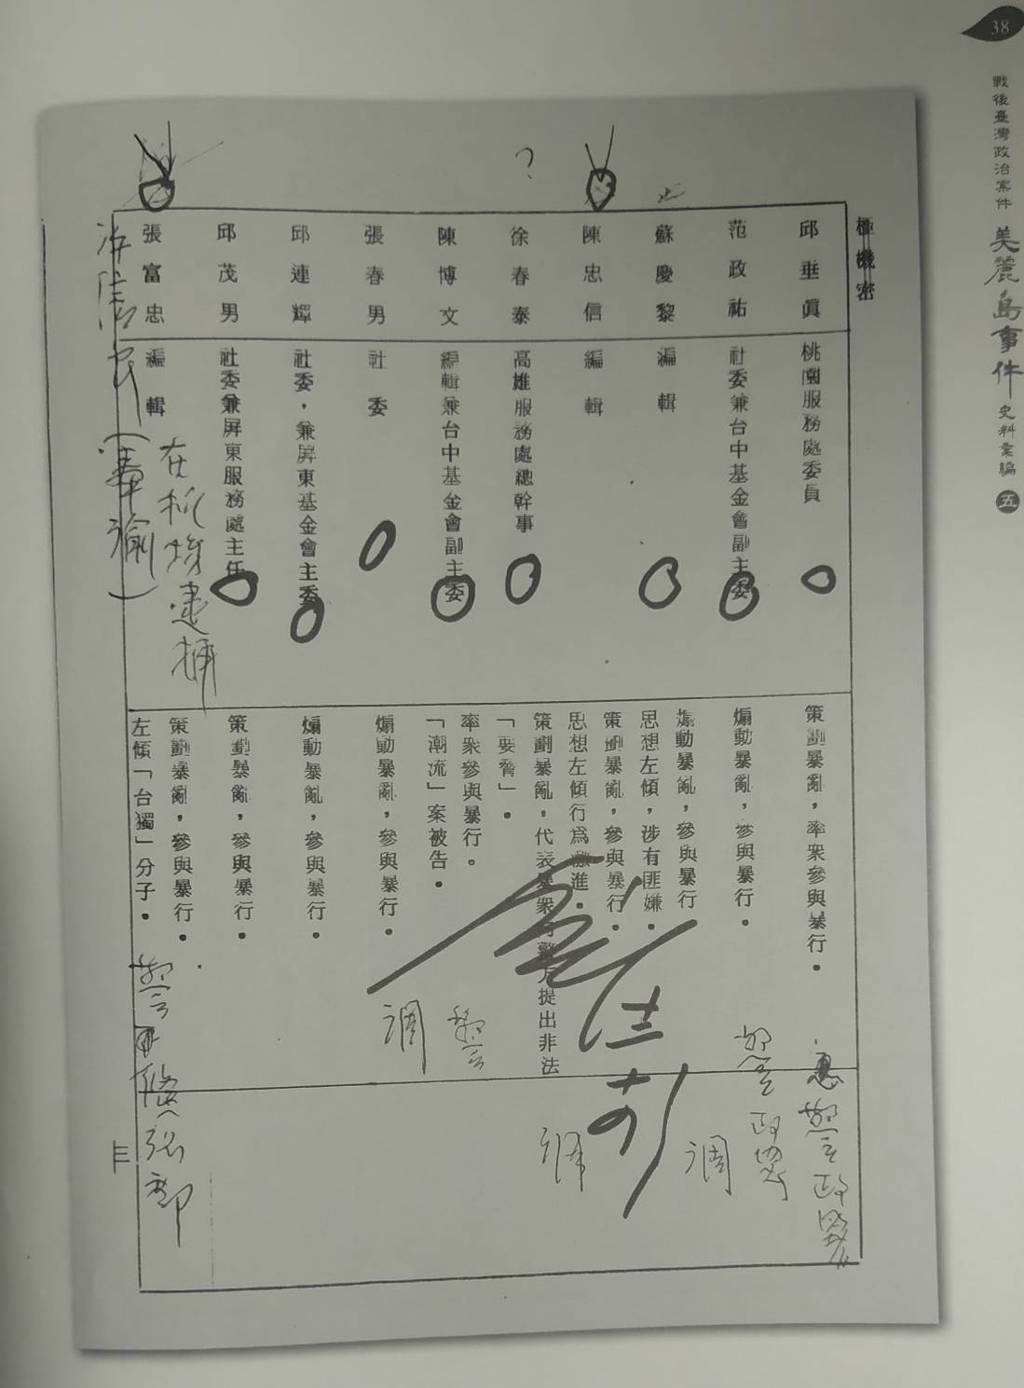 38
戰後臺灣政治案件
美麗島事件
史料彙編
五
極機密
邱垂眞
桃園服務處委員
策劃暴亂，率衆參與暴行。
范政祐
社委兼台中基金會副主委
煽動暴亂，參與暴行。
蘇慶黎
編輯
煽動暴亂，參與暴行
思想左傾，涉有匪嫌。
陳忠信
編輯
策劃暴亂，參與暴行。
思想左傾行爲激進。
徐春泰
高雄服務處總幹事
策劃暴亂，代表暴衆向警方提出非法
「要脅」。
陳博文
編輯兼台中基金會副主委
率衆參與暴行。
「潮流」案被告。
張春男
社委
煽動暴亂，參與暴行。
邱連輝
社委，兼屏東基金會主委
煽動暴亂，參與暴行。
邱茂男
社委兼屏東服務處主任
策劃暴亂，參與暴行。
張富忠
編輯
策劃暴亂，參與暴行。
左傾「台獨」分子。
?
在機場逮捕
警
調
調
三